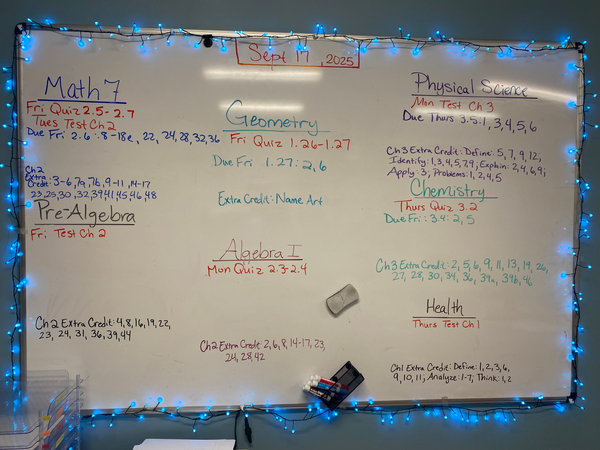 Sept 17, 2025
Math 7
Fri Quiz 2.5-2.7
Tues Test Ch 2
Due Fri 2.6: 8-18e, 22, 24, 28, 32, 36
Ch2
Extra
Credit: 3-6, 7a, 7b, 9-11, 14-17
23, 25, 30, 32, 39, 41, 45, 46, 48
Pre-Algebra
Fri Test Ch 2
Ch2 Extra Credit: 4, 8, 16, 19, 22,
23, 24, 31, 36, 39, 44
Geometry
Fri Quiz 1.26-1.27
Due Fri 1.27: 2, 6
Extra Credit: Name Art
Algebra I
Mon Quiz 2.3-2.4
Ch2 Extra Credit: 2, 6, 8, 14-17, 23,
24, 28, 42
Physical Science
Mon Test Ch 3
Due Thurs 3.5: 1, 3, 4, 5, 6
Ch3 Extra Credit: Define: 5, 7, 9, 12,
Identify: 1, 3, 4, 5, 7, 9, Explain: 2, 4, 6, 9,
Apply: 3, Problems: 1, 2, 4, 5
Chemistry
Thurs Quiz 3.2
Due Fri: 3.4: 2, 5
Ch 3 Extra Credit: 2, 5, 6, 9, 11, 13, 19, 26,
27, 28, 30, 34, 36, 39a, 39b, 46
Health
Thurs Test Ch 1
Ch1 Extra Credit: Define: 1, 2, 3, 6,
9, 10, 11, Analyze: 1-7, Think: 1, 2